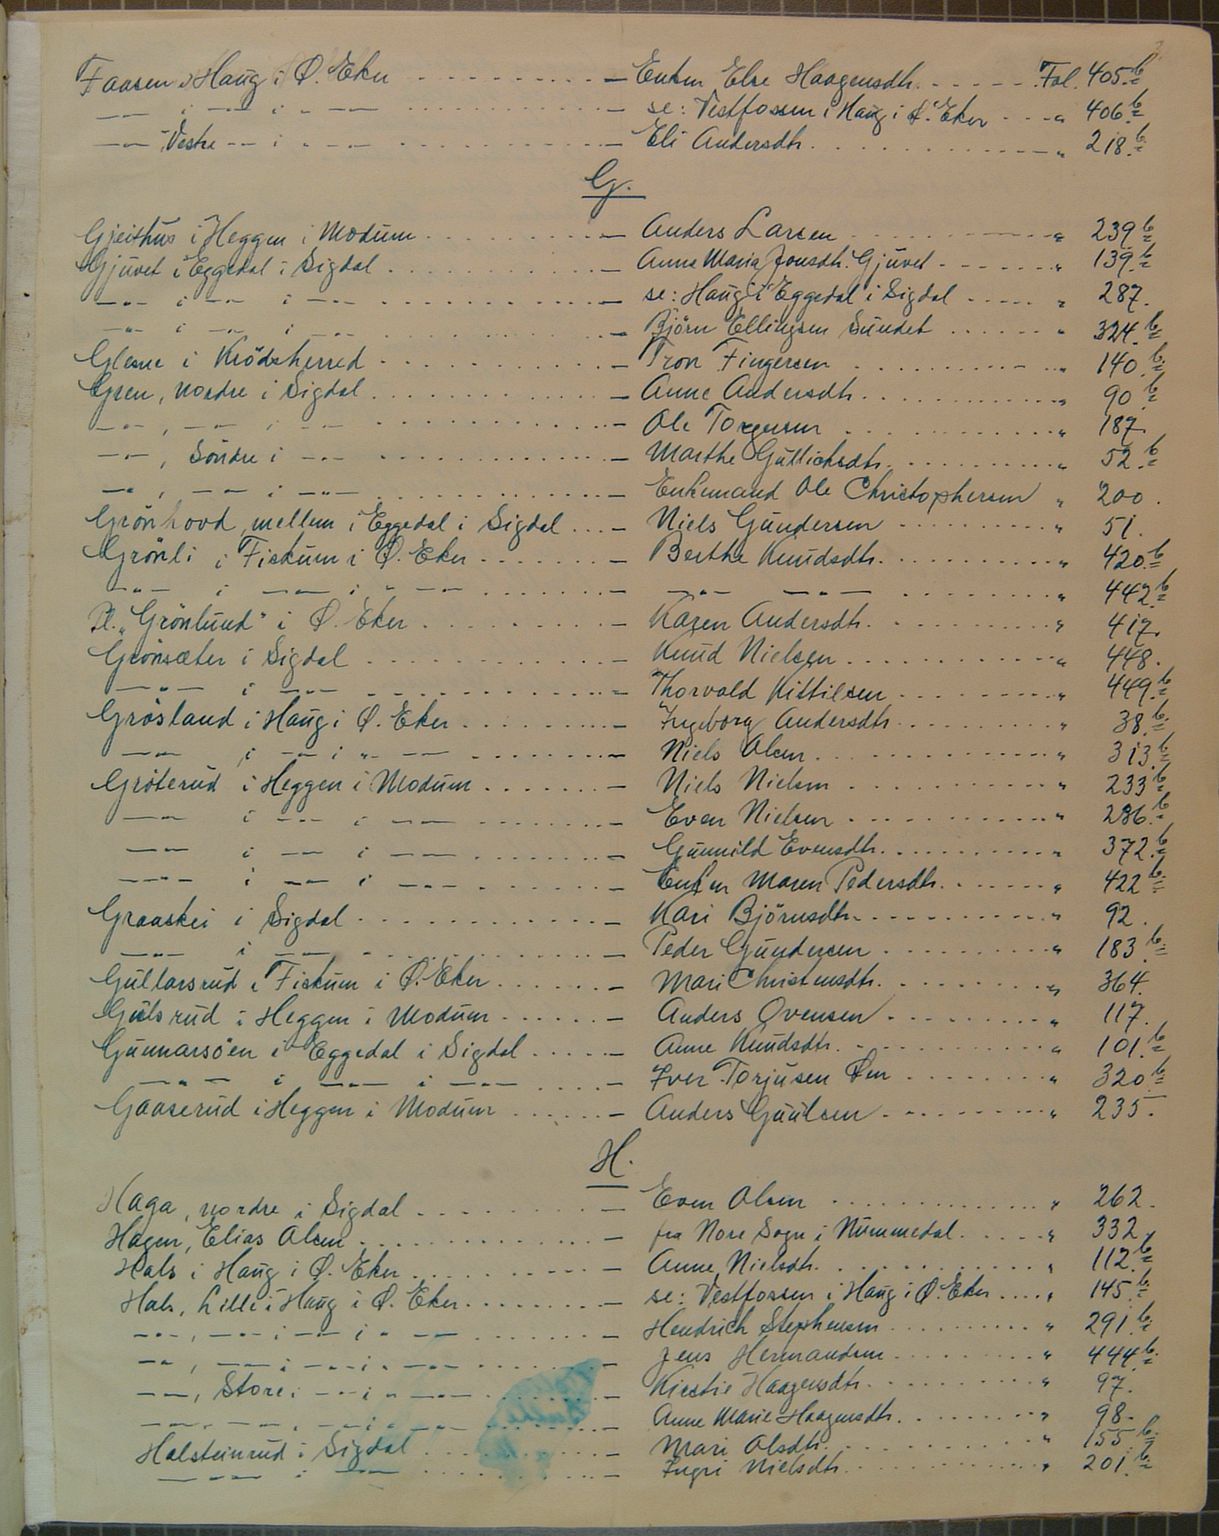 Faasen i Haug i Ø. Eker . . . . . . . . . — Enken Else Haagensdtr. . . . . . . Fol. 405.b
— „ — i — „ — i „ — „ — — se: Vestfossen i Haug i Ø. Eker . . . „ 406.b
— „ — Vestre — „ — i „ — „ — — Eli Andersdtr. . . . . . . . . . . „ 218.b
G.
Gjeithus i Heggen i Modum . . . . . . . . — Anders Larsen . . . . . . . . . „ 239.b
Gjuvet i Eggedal i Sigdal . . . . . . . . . — Anne Maria Jonsdtr. Gjuvet . . . . . . „ 139.b
— „ — i — „ — i — „ — . . . . . . . . . — se: Haug i Eggedal i Sigdal . . . . . „ 287.
— „ — i — „ — i — „ — . . . . . . . . . — Björn Ellingsen Sundet . . . . . . „ 324.b
Glesne i Krödsherred . . . . . . . . . — Tron Fingersen . . . . . . . . . „ 140.b
Gren, nordre i Sigdal . . . . . . . . . . — Anne Andersdtr. . . . . . . . . . „ 90.b
— „ — , — „ — i — „ — . . . . . . . . . — Ole Torgersen . . . . . . . . . „ 187.
— „ — , Söndre i — „ — . . . . . . . . . — Marthe Gullichsdtr. . . . . . . . . „ 52.b
— „ — , — „ — i — „ — . . . . . . . . . — Enkemand Ole Christophersen „ 200.
Grönhovd, mellem i Eggedal i Sigdal . . . — Niels Gundersen . . . . . . . . . „ 51.
Grönli i Fiskum i Ø. Eker . . . . . . . — Berthe Knudsdtr. . . . . . . . . . „ 420.b
— „ — i — „ — i „ — „ — . . . . . . . — — „ — — „ — . . . . . . . . . „ 442.b
Pl. „Grönlund" i Ø. Eker . . . . . . . . — Karen Andersdtr. . . . . . . . . . „ 417.
Grönsæter i Sigdal . . . . . . . . . . — Knud Nielsen . . . . . . . . . . „ 448.
— „ — i — „ — . . . . . . . . . . — Thorvald Kittilsen . . . . . . . . „ 449.b
Grösland i Haug i Ø. Eker . . . . . . . — Ingeborg Andersdtr. . . . . . . . „ 38.b
— „ — i — „ — i „ — „ — . . . . . . . — Niels Olsen . . . . . . . . . . . „ 313.b
Gröterud i Heggen i Modum . . . . . . . — Niels Nielsen . . . . . . . . . . „ 233.b
— „ — i — „ — i — „ — . . . . . . . — Even Nielsen . . . . . . . . . . „ 286.b
— „ — i — „ — i — „ — . . . . . . . — Gunnild Evensdtr. . . . . . . . . „ 372.b
— „ — i — „ — i — „ — . . . . . . . — Enken Maren Pedersdtr. . . . . . „ 422.b
Graaskei i Sigdal . . . . . . . . . . — Kari Björnsdtr. . . . . . . . . . „ 92.
— „ — i — „ — . . . . . . . . . . — Peder Gundersen . . . . . . . . „ 183.b
Gullarsrud i Fiskum i Ø. Eker . . . . . . — Mari Christensdtr. . . . . . . . . „ 364.
Gulsrud i Heggen i Modum . . . . . . — Anders Ovensen . . . . . . . . „ 117.
Gunnarsöen i Eggedal i Sigdal . . . . . — Anne Knudsdtr. . . . . . . . . . „ 101.b
— „ — i — „ — i — „ — . . . . . — Iver Torjusen Øen . . . . . . . . „ 320.b
Gaaserud i Heggen i Modum . . . . . . — Anders Guulsen . . . . . . . . . „ 235.
H.
Haga, nordre i Sigdal . . . . . . . . — Even Olsen . . . . . . . . . . „ 262.
Hagen, Elias Olsen . . . . . . . . . . — fra Nore Sogn i Nummedal . . . . . „ 332.
Hals i Haug i Ø. Eker . . . . . . . . — Anne Nielsdtr. . . . . . . . . . . „ 112.b
Hals, Lille i Haug i Ø. Eker . . . . . . . — se: Vestfossen i Haug i Ø. Eker . . . . „ 145.b
— „ — , — „ — i — „ — i „ — „ — . . . . . . . — Hendrich Stephensen . . . . . . . . „ 291.b
— „ — , — „ — i — „ — i „ — „ — . . . . . . . — Jens Hermandsen . . . . . . . . „ 444.b
— „ — , Store i — „ — i „ — „ — . . . . . . — Kirstie Haagensdtr. . . . . . . . . „ 97.
— „ — , — „ — i — „ — i „ — „ — . . . . . . — Anne Marie Haagensdtr. . . . . . . „ 98.
Halsteinrud i Sigdal . . . . . . . . — Mari Olsdtr. . . . . . . . . . . „ 155.b
— „ — i — „ — . . . . . . . . — Ingri Nielsdtr. . . . . . . . . . „ 201.b